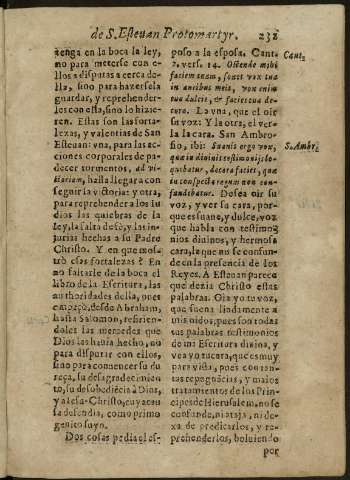 de S. Esteuan Protomartyr. 232
tenga en la boca la ley,
no para meterse con e-
llos a disputas a cerca de-
lla, sino para hazersela
guardar, y reprehender-
los con esta, sino lo hizie-
ren. Estas son las forta-
lezas, y valentias de San
Esteuan: vna, para las ac-
ciones corporales de pa-
decer tormentos, ad vi-
ctoriam, hasta llegar a con
seguir la victoria: y otra,
para reprehender a los iu
dios las quiebras de la
ley, la falta de fe, y las in-
jurias hechas a su Padre
Christo. Y en que mos-
trò esas fortalezas? En
no faltarle de la boca el
libro de la Escritura, las
authoridades della, pues
empeçò, desde Abraham,
hasta Salomon, refirien-
doles las mercedes que
Dios les hauia hecho, no
para disputir con ellos,
sino para conuencer su du
reça, su desagradecimien
to, su desobediẽcia à Dios,
y a Iesu-Christo, cuya cau
sa defendia, como primo
genito suyo.
Dos cosas pedia el es-
poso a la esposa. Cant.
2. vers. 14. Ostende mihi
faciem tuam, sonet vox tua
in auribus meis, vox enim
tua dulcis, & facies tua de-
cora. La vna, que el oir
su voz: Y la otra, el ver-
la la cara. San Ambro-
sio, ibi: Suauis ergo vox,
qua in diuinis testimonijs lo-
quebatur, decora facies, quæ
in conspectu regum non con-
fundebatur. Desea oir su
voz, y ver su cara, por-
que es suaue, y dulce, voz
que habla con testimo-
nios diuinos, y hermosa
cara, la que no se confun-
de en la presencia de los
Reyes. A Esteuan parece
que dezia Christo estas
palabras. Oìa yo tu voz,
que suena lindamente a
mis oidos, pues son todas
sus palabras testimonios
de mi Escritura diuina, y
vea yo tu cara, que es muy
para vista, pues con tan-
tas repugnãcias, y malos
tratamientos de los Prin-
cipes de Hierusalem, no se
confunde, ni ataja, ni de-
xa de predicarlos, y re-
prehenderlos, boluiendo
por
Cant. 2
S. Ambr.